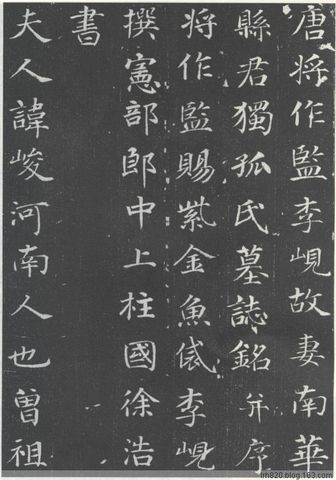 唐將作監李峴故妻南華
縣君獨孤氏墓誌銘并序
將作監賜紫金魚袋李峴
撰憲部郎中上柱國徐浩
書
夫人諱峻河南人也曾祖
lm820.blog.163.com